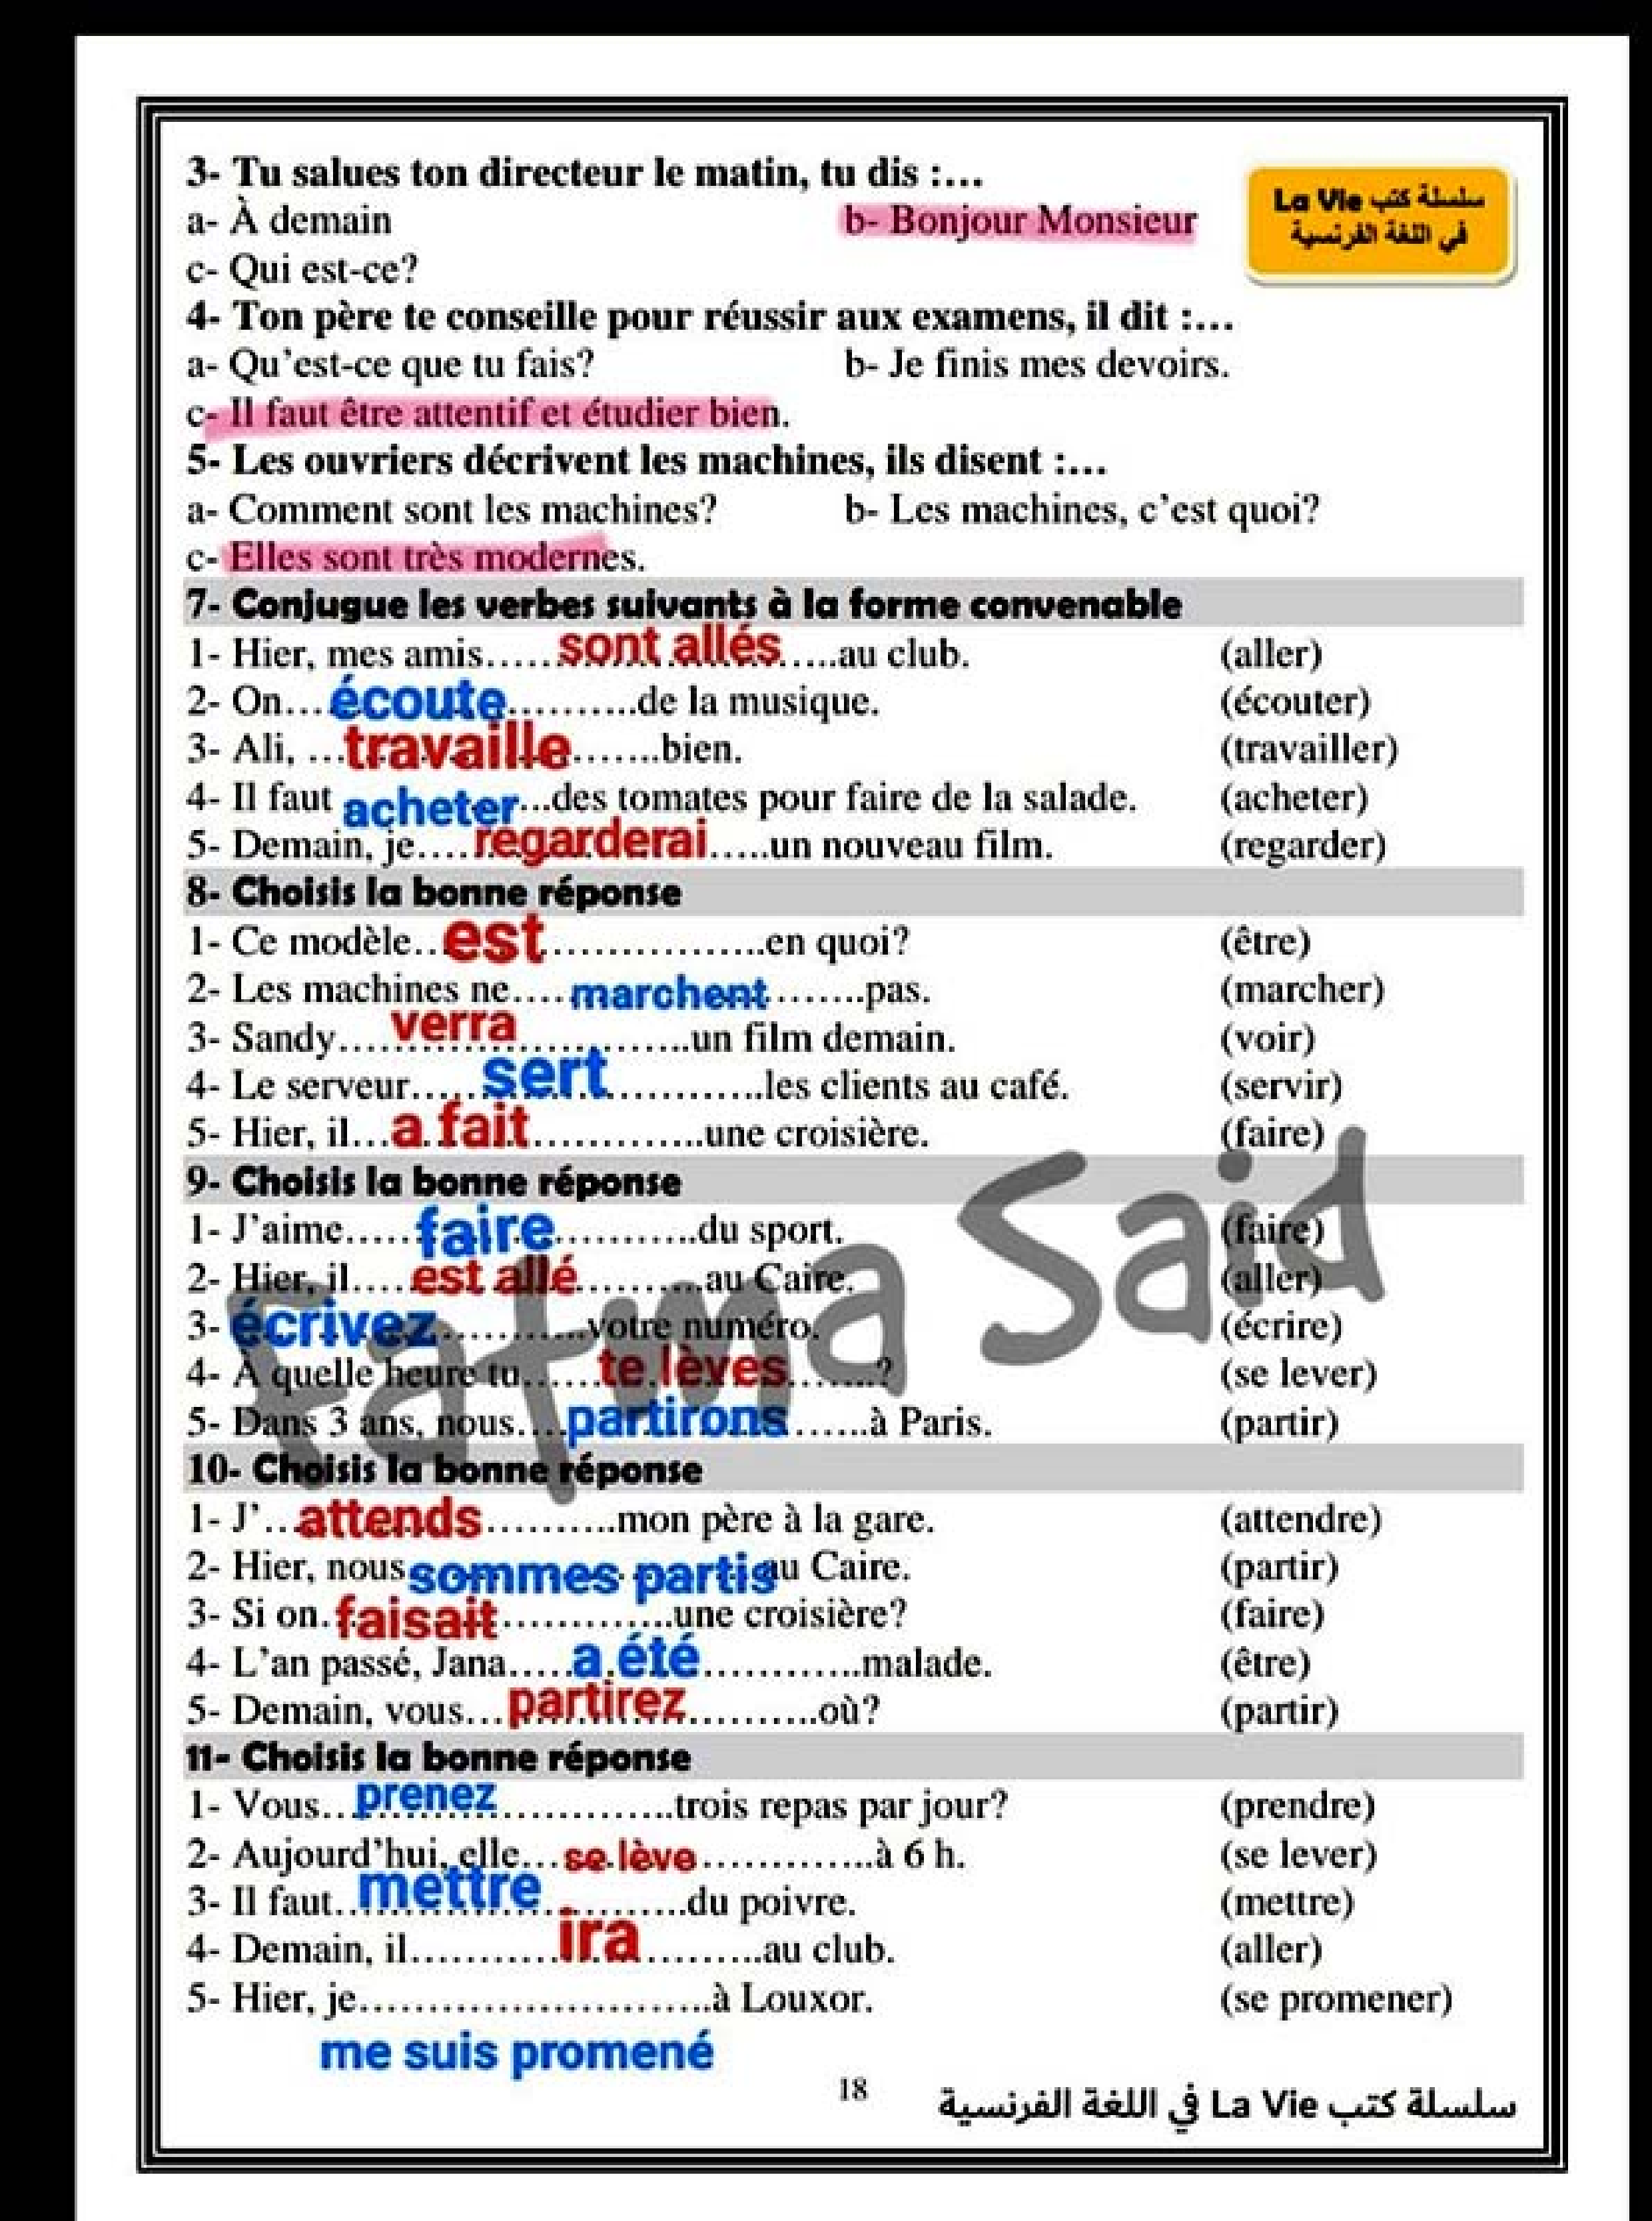 3- Tu salues ton directeur le matin, tu dis :...
سلسلة كتب La Vie
في اللغة الفرنسية
a- À demain b- Bonjour Monsieur
c- Qui est-ce?
4- Ton père te conseille pour réussir aux examens, il dit :...
a- Qu'est-ce que tu fais? b- Je finis mes devoirs.
c- Il faut être attentif et étudier bien.
5- Les ouvriers décrivent les machines, ils disent :...
a- Comment sont les machines? b- Les machines, c'est quoi?
c- Elles sont très modernes.
7- Conjugue les verbes suivants à la forme convenable
1- Hier, mes amis.....sont allés.....au club. (aller)
2- On...écoute..........de la musique. (écouter)
3- Ali, ...travaille.......bien. (travailler)
4- Il faut acheter...des tomates pour faire de la salade. (acheter)
5- Demain, je....regarderai.....un nouveau film. (regarder)
8- Choisis la bonne réponse
1- Ce modèle..est................en quoi? (être)
2- Les machines ne....marchent........pas. (marcher)
3- Sandy....verra............un film demain. (voir)
4- Le serveur.....sert............les clients au café. (servir)
5- Hier, il...a fait.............une croisière. (faire)
9- Choisis la bonne réponse
1- J'aime.....faire...........du sport. (faire)
2- Hier, il....est allé.........au Caire. (aller)
3- écrivez...........votre numéro. (écrire)
4- À quelle heure tu......te lèves.......? (se lever)
5- Dans 3 ans, nous....partirons......à Paris. (partir)
Fatma Said
10- Choisis la bonne réponse
1- J'...attends..........mon père à la gare. (attendre)
2- Hier, nous sommes partis au Caire. (partir)
3- Si on.faisait.............une croisière? (faire)
4- L'an passé, Jana.....a été............malade. (être)
5- Demain, vous...partirez..........où? (partir)
11- Choisis la bonne réponse
1- Vous...prenez.............trois repas par jour? (prendre)
2- Aujourd'hui, elle...se lève.............à 6 h. (se lever)
3- Il faut..mettre..........du poivre. (mettre)
4- Demain, il...........ira.........au club. (aller)
5- Hier, je..........................à Louxor. (se promener)
me suis promené
18
سلسلة كتب La Vie في اللغة الفرنسية